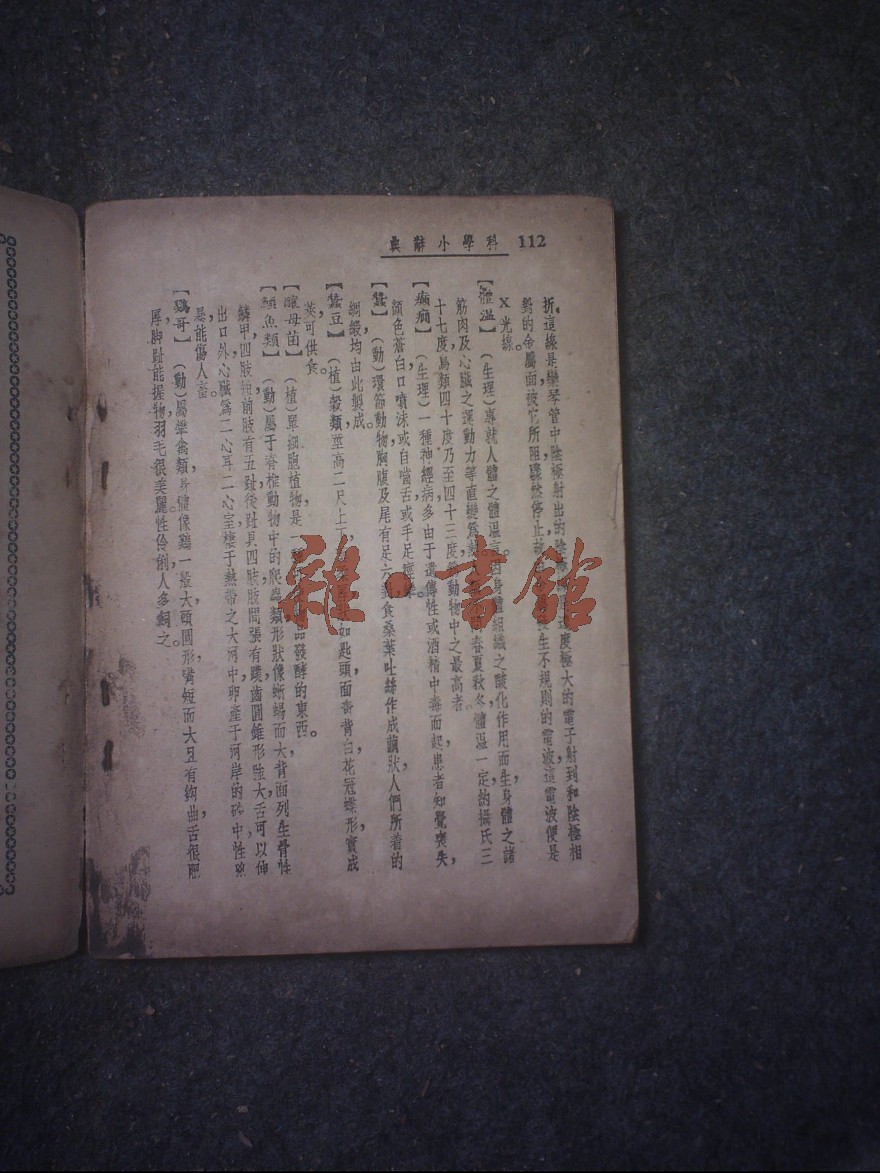 科學小辭典 112
折，這線是欒琴管中陰極射出的陰 度極大的電子射到和陰極相
對的金屬面，被它所阻，驟然停止，故 生不規則的電波，這電波便是
X光線。
【體溫】 (生理)專就人體之體溫言。因身體組織之酸化作用而生。身體之諸
筋肉及心臟之運動力等直變爲 春夏秋冬，體溫一定，約攝氏三
十七度，鳥類四十度乃至四十三度，爲動物中之最高者。
【癲癇】 (生理)一種神經病，多由于遺傳性或酒精中毒而起，患者知覺喪失，
顏色蒼白，口噴沫，或自嚙舌，或手足
【蠶】 (動)環節動物，胸腹及尾有足六 食桑葉，吐絲作成繭狀，人們所着的
綢緞均由此製成。
【蠶豆】 (植)穀類，莖高二尺上下， 如匙頭，面靑背白，花冠蝶形，實成
莢，可供食。
【釀母菌】 (植)單細胞植物，是一 發酵的東西。
【鱷魚類】 (動)屬于脊椎動物中的爬蟲類，形狀像蜥蜴而大，背面列生骨性
鱗甲，四肢短，前肢有五趾，後趾具四肢，肢間張有蹼，齒圓錐形，強大，舌可以伸
出口外，心臟爲二心耳二心室，棲于熱帶之大河中，卵產于河岸的砂中，性
是能傷人畜。
【鸚哥】 (動)屬攀禽類，身體像鷄一般大，頭圓形，嘴短而大，且有鉤曲，舌很肥
厚，脚趾能握物，羽毛很美麗，性伶俐，人多飼之。
雜·書館